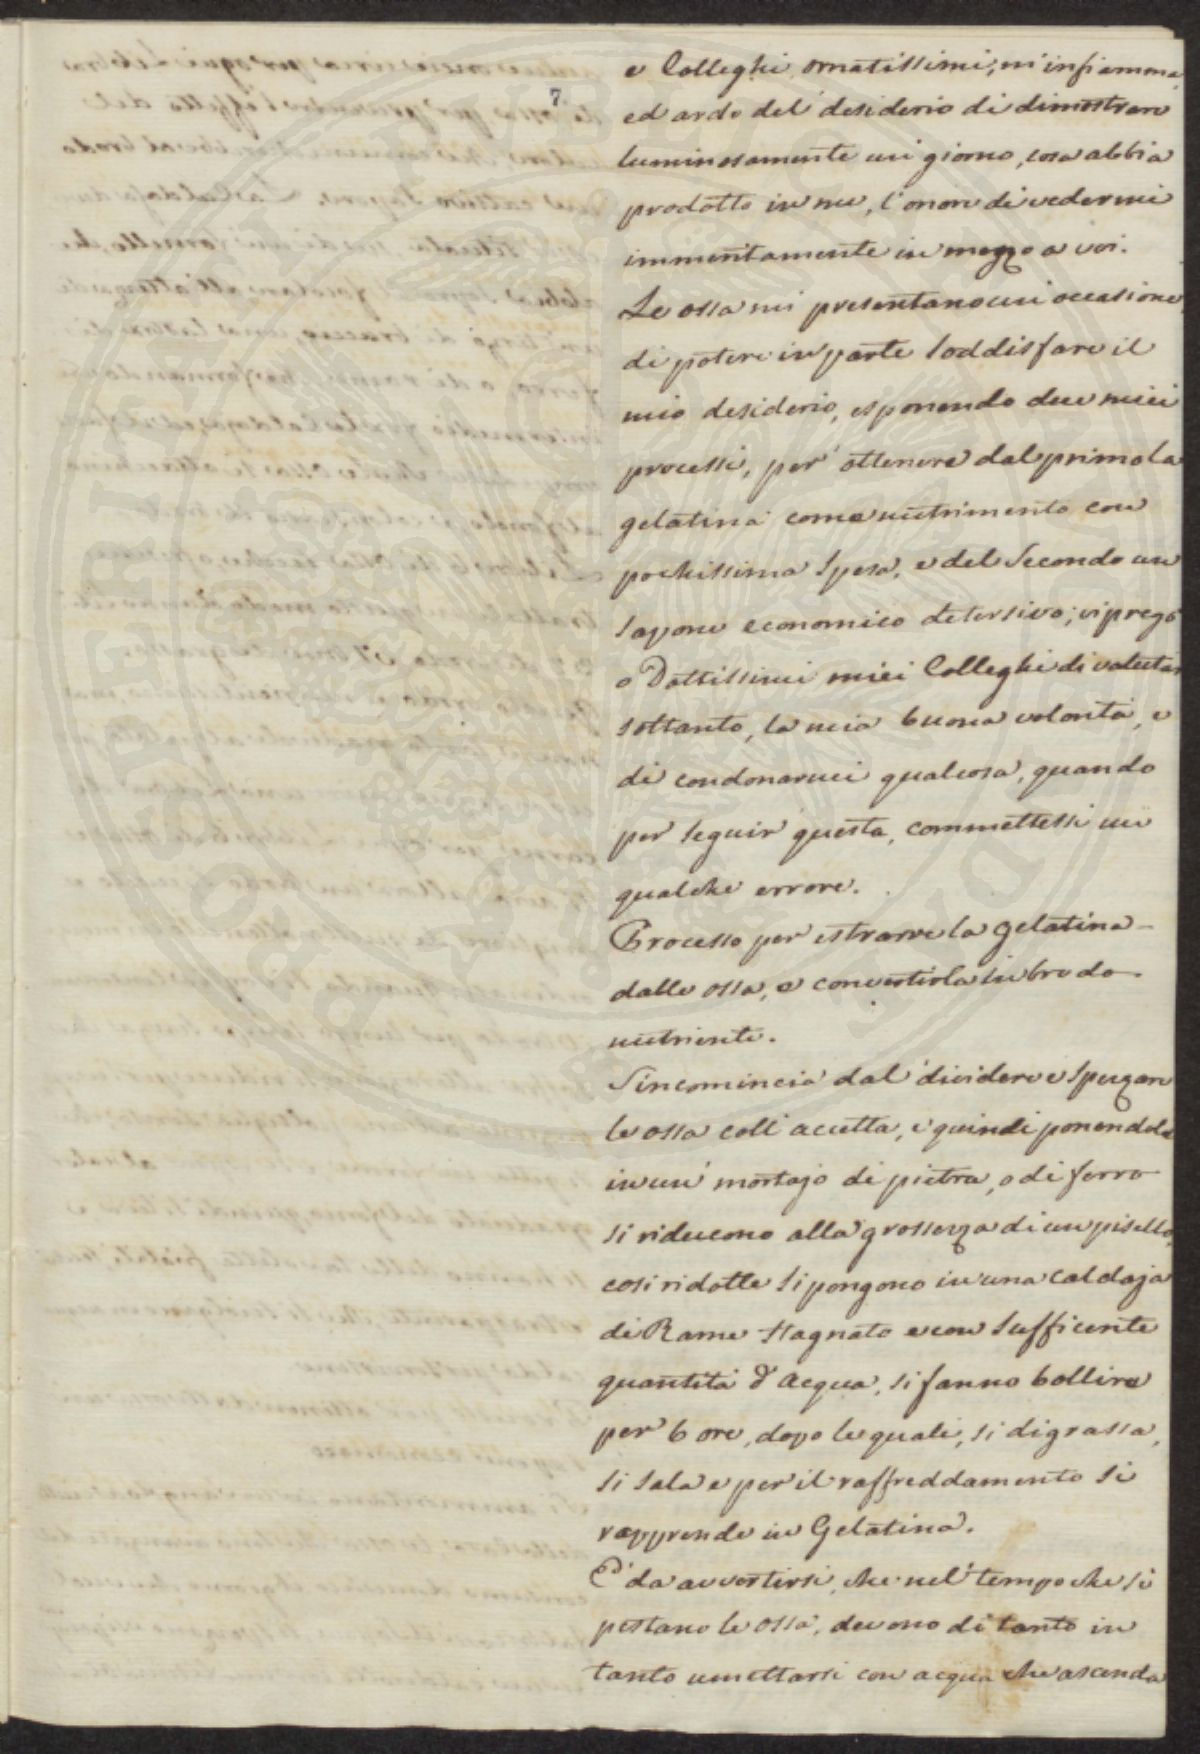 7
e Colleghi ornatissimi, m'infiamma,
ed ardo del' desiderio di dimostrare
luminosamente un giorno, cosa abbia
prodotto in me, l'onore di vedermi
immeritamente in mezzo a voi.
Le ossa mi presentano un'occasione
di potere in parte soddisfare il
mio desiderio, esponendo due miei
processi, per ottenere dal primo la
gelatina come nutrimento con
pochissima spesa, e del secondo un
sapone economico detersivo; vi prego
o Dottissimi miei Colleghi di valutar
soltanto, la mia buona volontà, e
di condonarmi qualcosa, quando
per seguir questa, commettessi un
qualche errore.
Processo per estrarre la gelatina
dalle ossa, e convertirla in brodo
nutriente.
S'incomincia dal dividere e spezzare
le ossa coll'accetta, e quindi ponendole
in un' mortajo di pietra, o di ferro
si riducono alla grossezza di un pisello,
così ridotte si pongono in una caldaja
di Rame stagnato e con sufficente
quantità d'acqua, si fanno bollire
per 6 ore, dopo le quali, si digrassa,
si sala e per il raffreddamento si
rapprende in Gelatina.
E' da avvertirsi, che nel' tempo che si
pestano le ossa, devono di tanto in
tanto umettarsi con acqua che ascenda